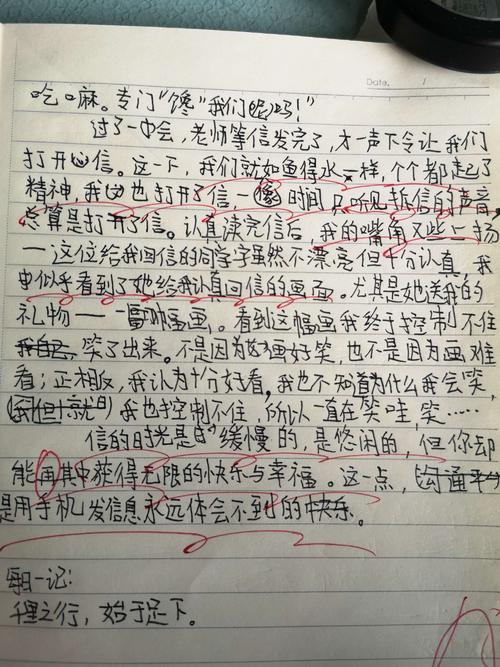 Date. /
吃口麻。专门"馋"我们呢吗!"
过了一中会,老师等信发完了,才一声下令让我们
打开信。这一下,我们就如鱼得水一样,个个都起了
精神,我也打开了信,一时间只听见拆信的声音。
总算是打开了信。认真读完信后,我的嘴角又些上扬
—这位给我回信的同学字虽然不漂亮但十分认真,我
似乎看到了她给我认真回信的画面。尤其是她送我的
礼物——一幅画。看到这幅画我终于控制不住
我自己,笑了出来。不是因为画好笑,也不是因为画难
看;正相反,我认为十分好看,我也不知道为什么我会笑,
我也控制不住,所以一直在笑哇,笑……
信的时光是缓慢的,是悠闲的,但你却
能再其中获得无限的快乐与幸福。这一点,沟通
是用手机发信息永远体会不到的快乐。
每日一记:
千里之行,始于足下。